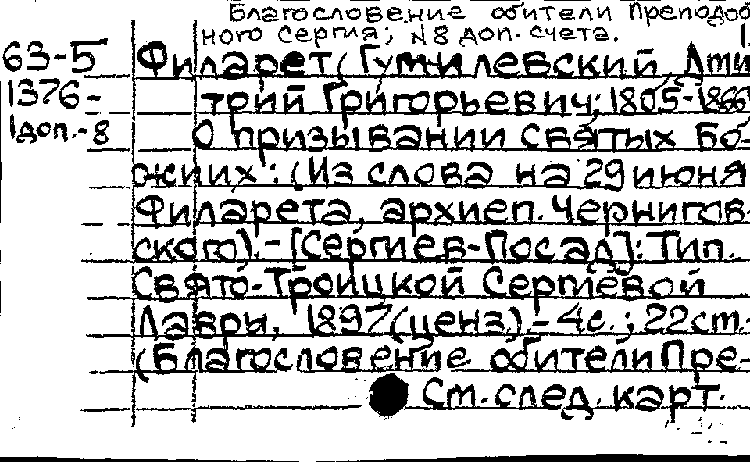 Благословение обители Преподоб
ного Сергия; N 8 доп. счета.
63-5 Филарет (Гумилевский, Дми
1376- трий Григорьевич; 1805-1866
1доп.-8 О призывании святых Бо-
жиих: (Из слова на 29 июня
Филарета, архиеп. Чернигов-
ского). - [Сергиев-Посад]: Тип.
Свято-Троицкой Сергиевой
Лавры, 1897 (ценз.) - 4с.; 22см.-
(Благословение обители Пре-
См. след. карт.